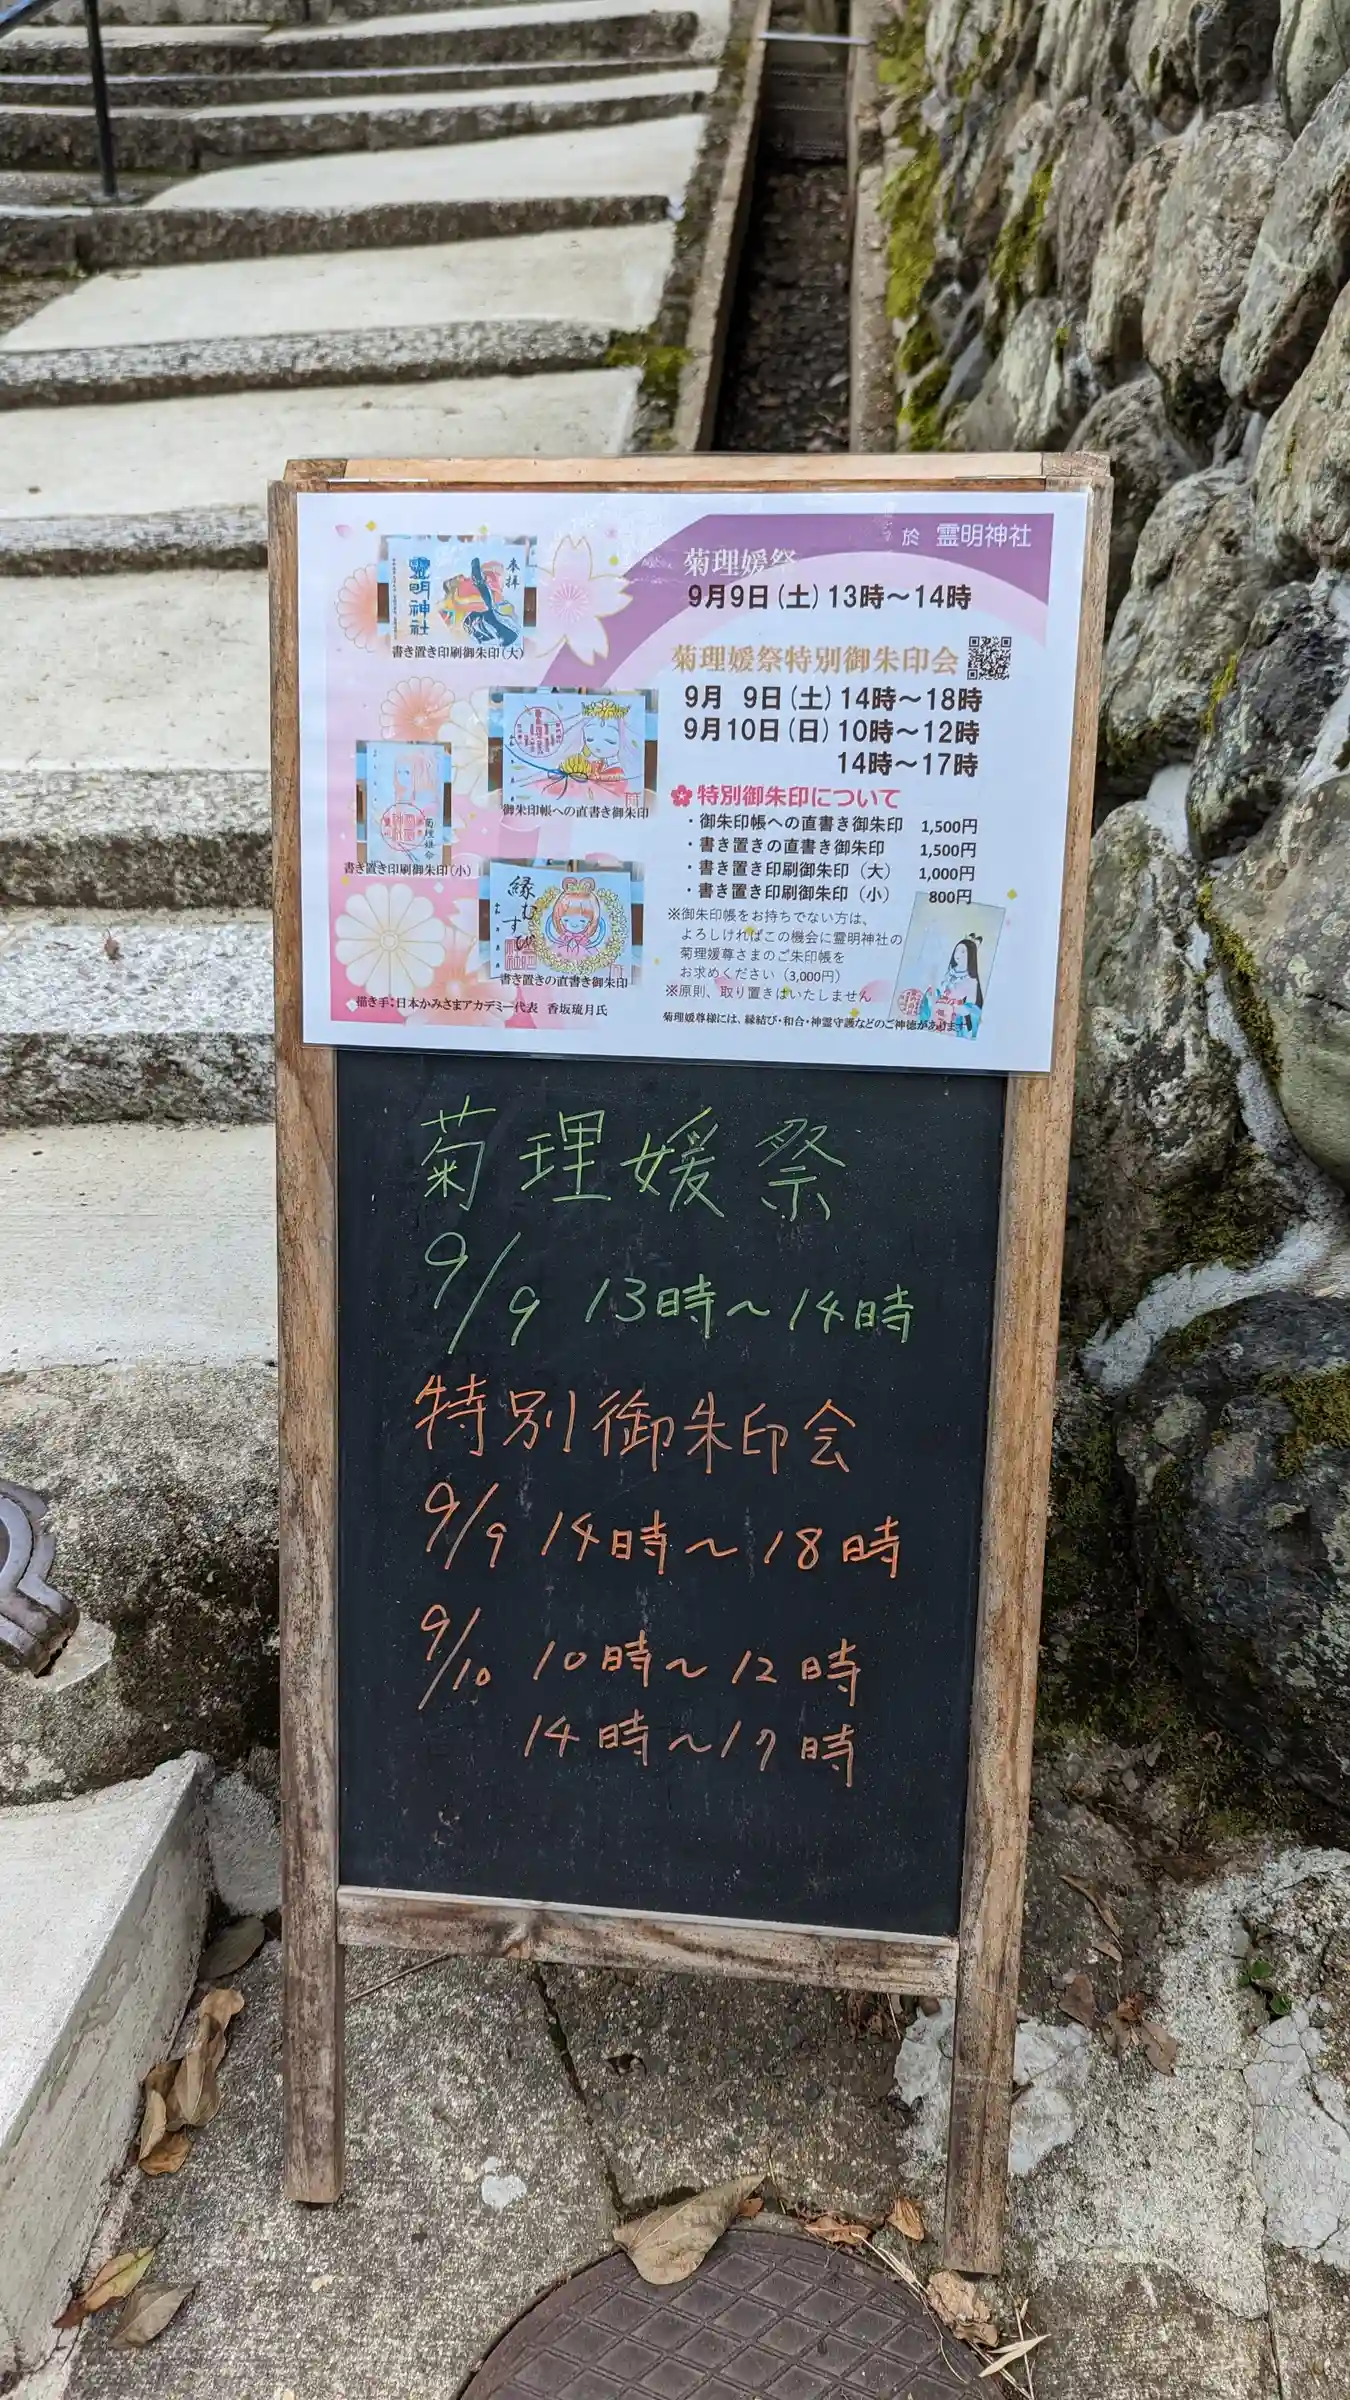 於 霊明神社
菊理媛祭
9月9日(土)13時～14時
菊理媛祭特別御朱印会
9月 9日(土)14時～18時
9月10日(日)10時～12時
14時～17時
特別御朱印について
・御朱印帳への直書き御朱印 1,500円
・書き置きの直書き御朱印 1,500円
・書き置き印刷御朱印(大) 1,000円
・書き置き印刷御朱印(小) 800円
※御朱印帳をお持ちでない方は、
よろしければこの機会に霊明神社の
菊理媛尊さまのご朱印帳を
お求めください(3,000円)
※原則、取り置きはいたしません
菊理媛尊様には、縁結び・和合・神霊守護などのご神徳があります
奉拝
霊明神社
書き置き印刷御朱印(大)
御朱印帳への直書き御朱印
菊理媛命
書き置き印刷御朱印(小)
縁むすび
書き置きの直書き御朱印
描き手：日本かみさまアカデミー代表 香坂琉月氏
菊理媛祭
9/9 13時～14時
特別御朱印会
9/9 14時～18時
9/10 10時～12時
14時～17時